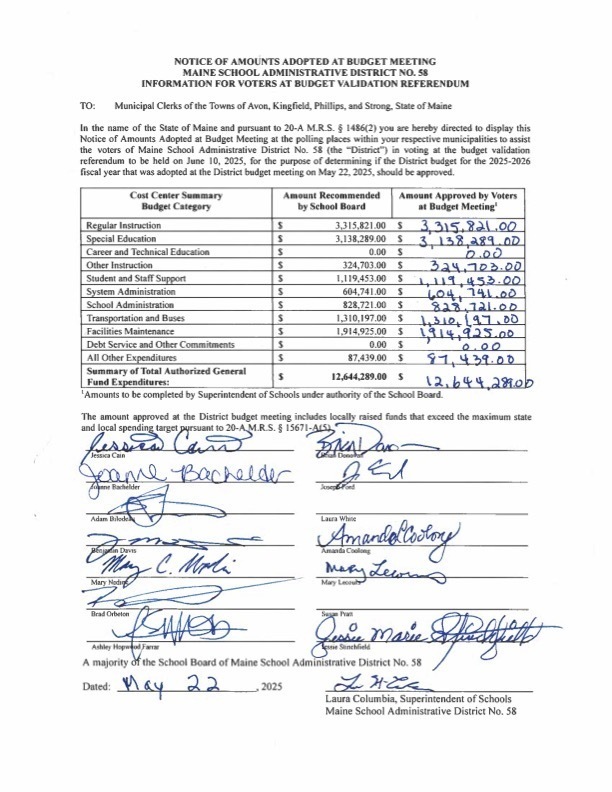 NOTICE OF AMOUNTS ADOPTED AT BUDGET MEETING
MAINE SCHOOL ADMINISTRATIVE DISTRICT NO. 58
INFORMATION FOR VOTERS AT BUDGET VALIDATION REFERENDUM
TO: Municipal Clerks of the Towns of Avon, Kingfield, Phillips, and Strong, State of Maine
In the name of the State of Maine and pursuant to 20-A M.R.S. § 1486(2) you are hereby directed to display this
Notice of Amounts Adopted at Budget Meeting at the polling places within your respective municipalities to assist
the voters of Maine School Administrative District No. 58 (the “District”) in voting at the budget validation
referendum to be held on June 10, 2025, for the purpose of determining if the District budget for the 2025-2026
fiscal year that was adopted at the District budget meeting on May 22, 2025, should be approved.
Cost Center Summary Amount Recommended Amount Approved by Voters
Budget Category by School Board at Budget Meeting¹
Regular Instruction $ 3,315,821.00 $ 3,315,821.00
Special Education $ 3,138,289.00 $ 3,138,289.00
Career and Technical Education $ 0.00 $ 0.00
Other Instruction $ 324,703.00 $ 324,703.00
Student and Staff Support $ 1,119,453.00 $ 1,119,453.00
System Administration $ 604,741.00 $ 604,741.00
School Administration $ 828,721.00 $ 828,721.00
Transportation and Buses $ 1,310,197.00 $ 1,310,197.00
Facilities Maintenance $ 1,914,925.00 $ 1,914,925.00
Debt Service and Other Commitments $ 0.00 $ 0.00
All Other Expenditures $ 87,439.00 $ 87,439.00
Summary of Total Authorized General
Fund Expenditures: $ 12,644,289.00 $ 12,644,289.00
¹Amounts to be completed by Superintendent of Schools under authority of the School Board.
The amount approved at the District budget meeting includes locally raised funds that exceed the maximum state
and local spending target pursuant to 20-A M.R.S. § 15671-A(5).
Jessica Cain
Jessica Cain Brian Donovan
Jeanne Bachelder
Jeanne Bachelder Joseph Ford
Adam Bilodeau Laura White
Amanda Coolong
Benjamin Davis Amanda Coolong
Mary
Mary
Brad Orbeton Susan Pratt
Jessie Marie Stinchfield
Ashley Hopwood Farrar Jessie Stinchfield
A majority of the School Board of Maine School Administrative District No. 58
Dated: May 22, 2025
Laura Columbia, Superintendent of Schools
Maine School Administrative District No. 58